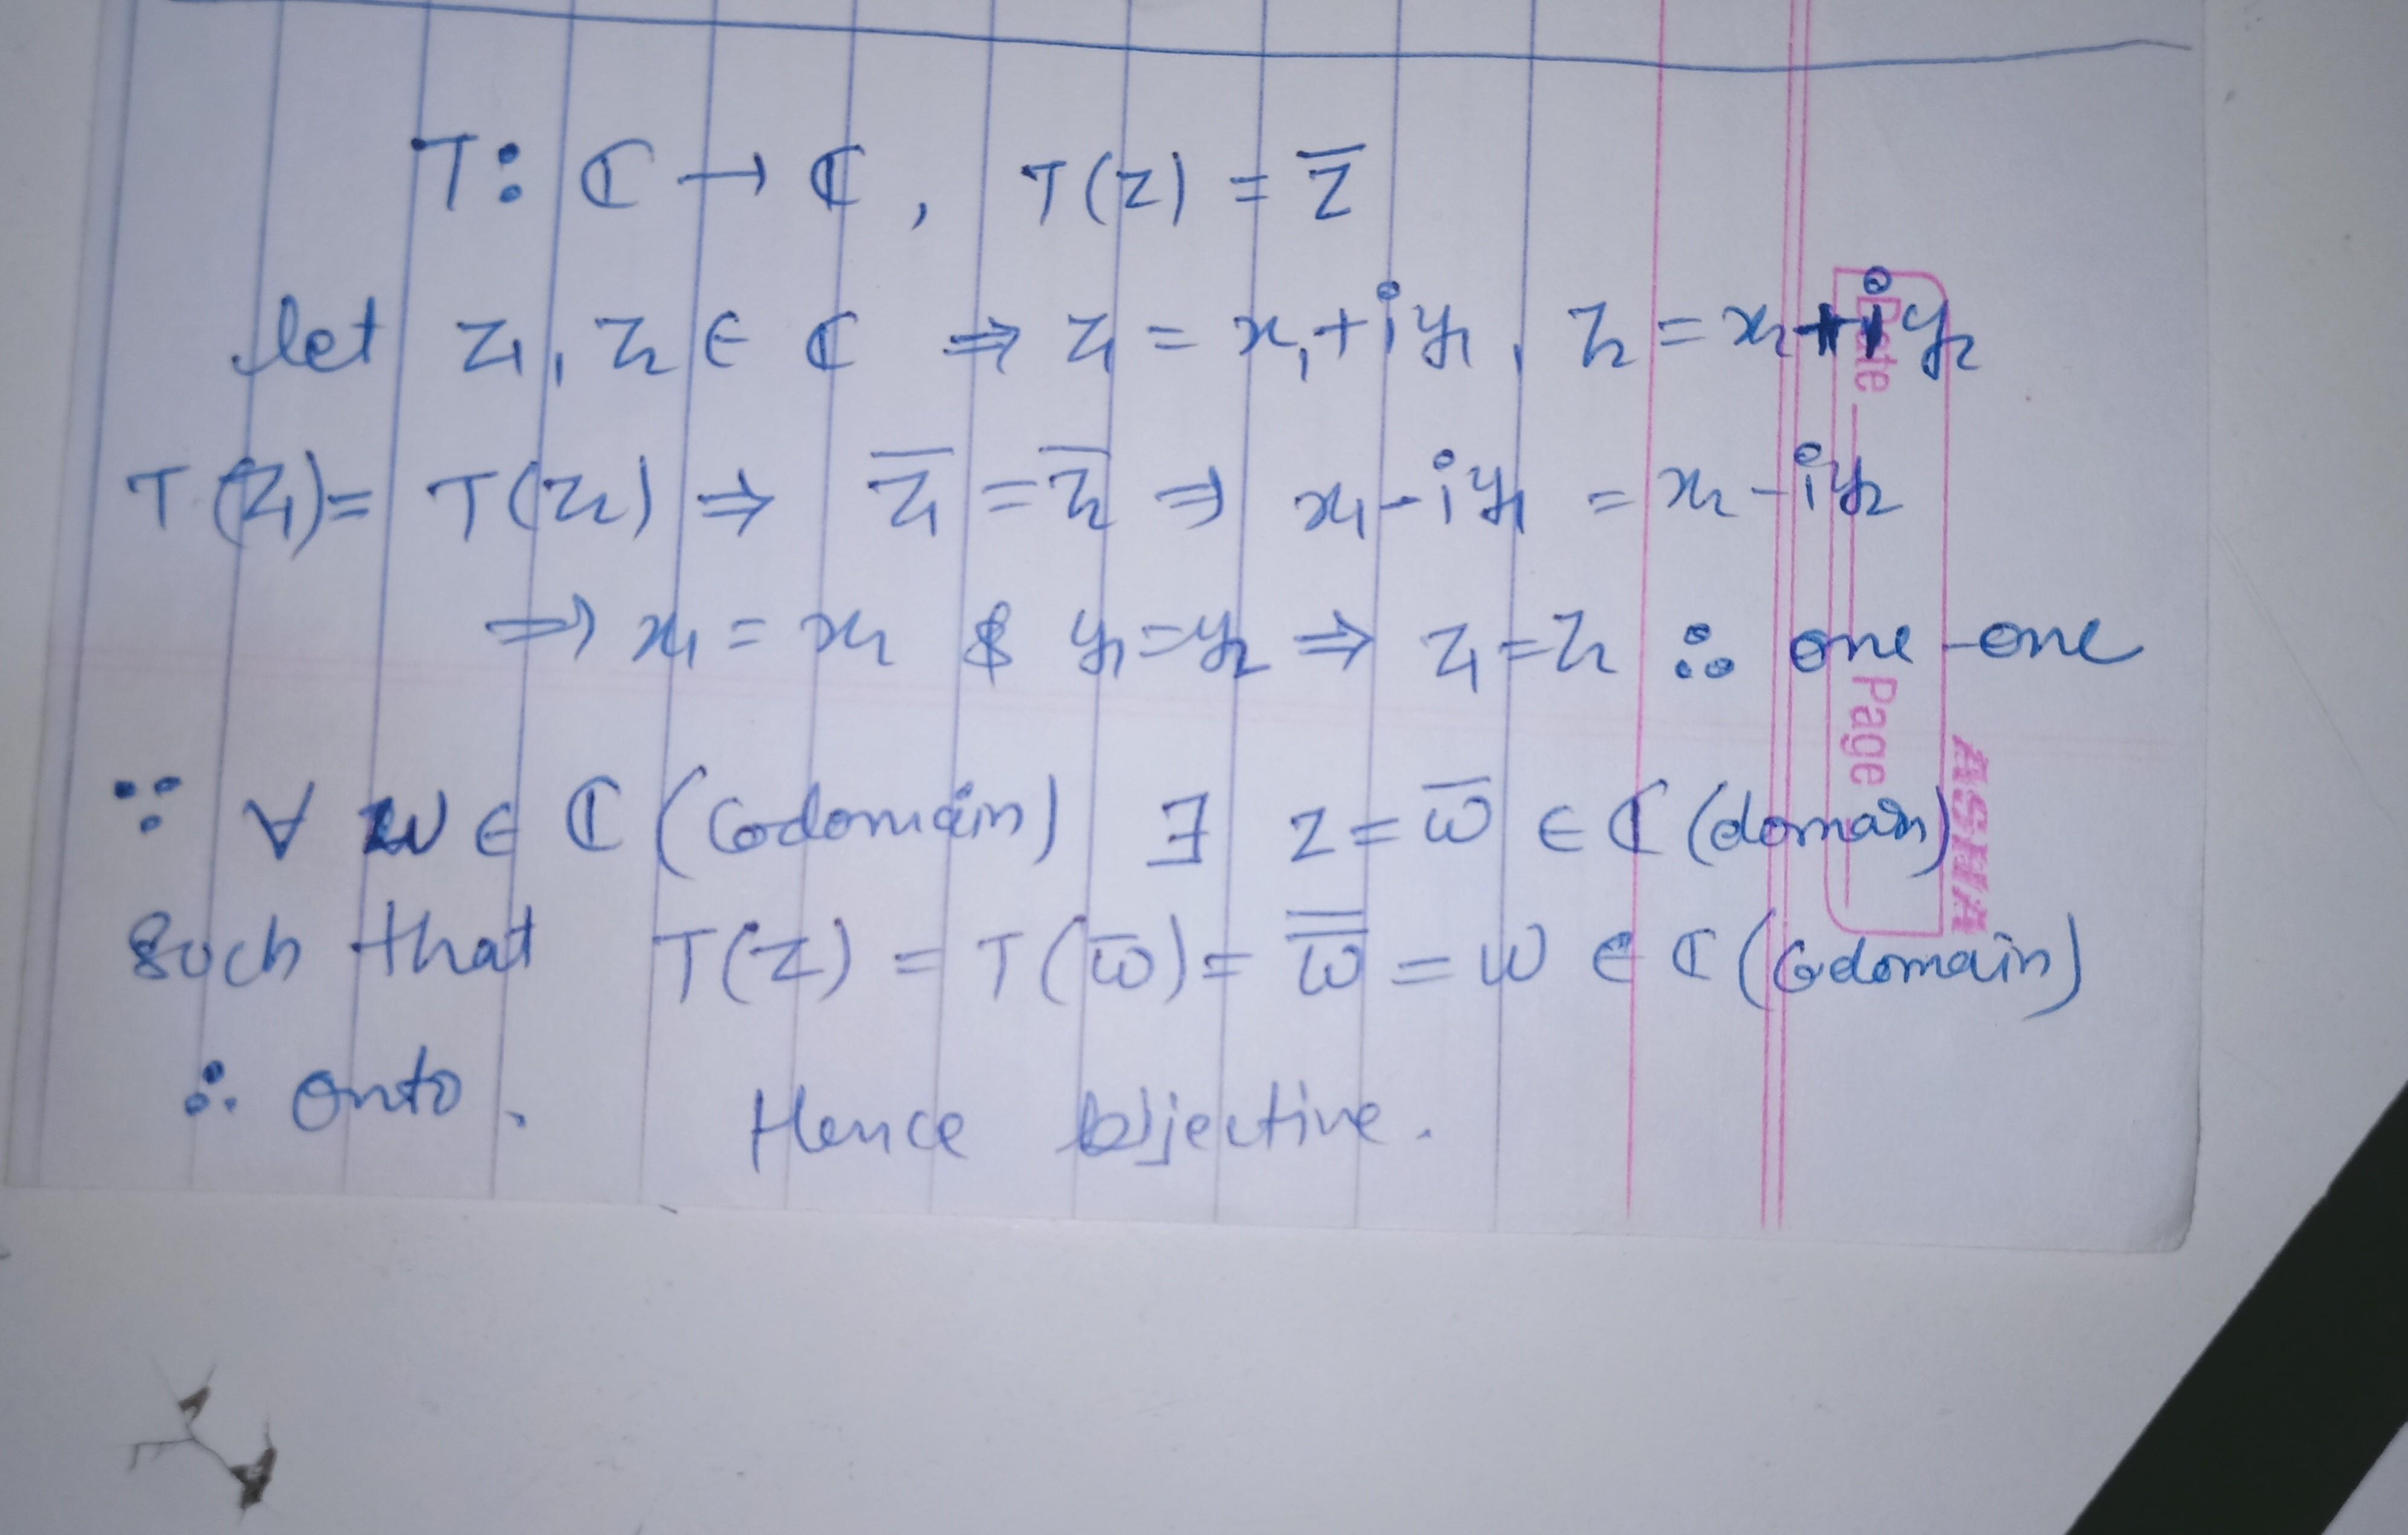 T : ℂ → ℂ , T(z) = z̅
let z₁, z₂ ∈ ℂ ⇒ z₁ = x₁ + iy₁, z₂ = x₂ + iy₂
T(z₁) = T(z₂) ⇒ z̅₁ = z̅₂ ⇒ x₁ - iy₁ = x₂ - iy₂
⇒ x₁ = x₂ & y₁ = y₂ ⇒ z₁ = z₂ ∴ one-one
∵ ∀ w ∈ ℂ (Codomain) ∃ z = w̅ ∈ ℂ (domain)
Such that T(z) = T(w̅) = w̿ = w ∈ ℂ (Codomain)
∴ Onto. Hence bijective.
Date
Page
ASHA